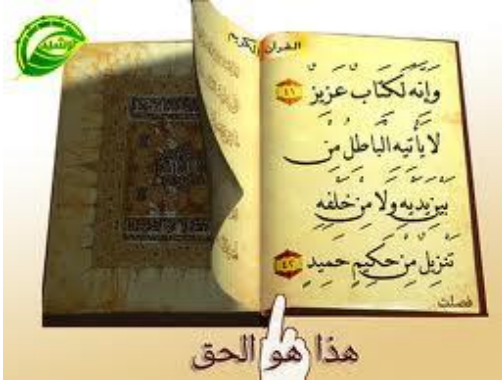 القرآن الكريم
وإنه لكتاب عزيز ٤١
لا يأتيه الباطل من
بين يديه ولا من خلفه
تنزيل من حكيم حميد ٤٢
فصلت
هذا هو الحق